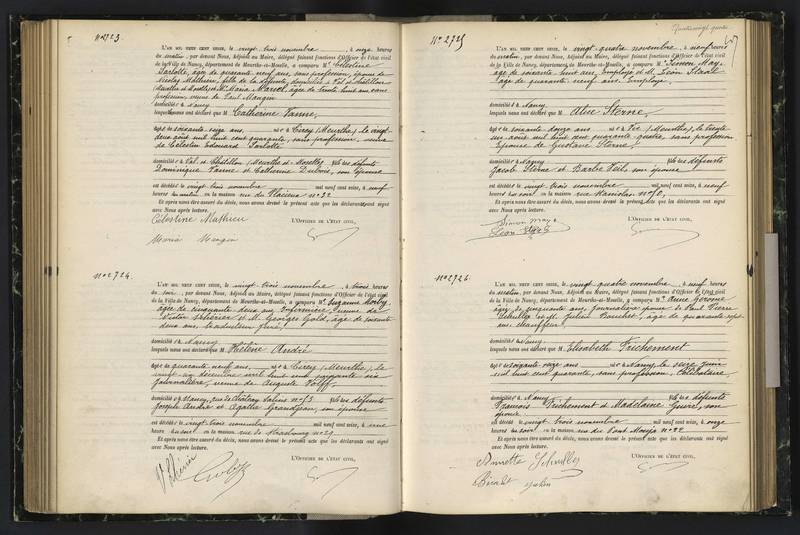 N° 2723.
L'AN MIL NEUF CENT SEIZE, le vingt trois novembre, à onze heures
du matin, par devant Nous, Adjoint au Maire, délégué faisant fonctions d'Officier de l'état civil
de la Ville de Nancy, département de Meurthe-et-Moselle, a comparu Me Célestine
Sarlotte, âgée de quarante neuf ans, sans profession, épouse de
Nicolas Mathieu, fille de la défunte, domiciliés à Val et Châtillon
(Meurthe et Moselle) et Me Maria Marcel, âgée de trente huit ans sans
profession, veuve de Paul Mangin
domicilié à Nancy
lesquels nous ont déclaré que M Catherine Vanne,
âgée de soixante seize ans, née à Cirey (Meurthe), le vingt
deux août mil huit cent quarante, sans profession, veuve
de Célestin Edouard Sarlotte
domiciliée à Val et Châtillon (Meurthe et Moselle) fille des défunts
Dominique Vanne et Catherine Dubois, son épouse
est décédée le vingt trois novembre mil neuf cent seize, à neuf
heures du matin en la maison rue de Placieux n° 32
Et après nous être assuré du décès, nous avons dressé le présent acte que les déclarants ont signé
avec Nous après lecture.
L'OFFICIER DE L'ÉTAT CIVIL,
Célestine Mathieu
Maria Mangin
N° 2724.
L'AN MIL NEUF CENT SEIZE, le vingt trois novembre, à trois heures
du soir, par devant Nous, Adjoint au Maire, délégué faisant fonctions d'Officier de l'état civil
de la Ville de Nancy, département de Meurthe-et-Moselle, a comparu Me Suzanne
âgée de cinquante deux ans, Infirmière, veuve de
Victor et M. Georges Gold, âgé de soixante
deux ans,
domiciliés à Nancy
lesquels nous ont déclaré que M Hélène André
âgée de quarante neuf ans, née à Cirey (Meurthe), le
vingt un décembre mil huit cent soixante six
Journalière, veuve de Auguste Wolff
domiciliée à Nancy, rue de Château Salins n° 53 fille des défunts
Joseph André et Agathe Grandjean, son épouse
est décédée le vingt trois novembre mil neuf cent seize, à une
heure du soir en la maison rue de Strasbourg n° 29
Et après nous être assuré du décès, nous avons dressé le présent acte que les déclarants ont signé
avec Nous après lecture.
L'OFFICIER DE L'ÉTAT CIVIL,
N° 2725
L'AN MIL NEUF CENT SEIZE, le vingt quatre novembre, à neuf heures
du matin, par devant Nous, Adjoint au Maire, délégué faisant fonctions d'Officier de l'état civil
de la Ville de Nancy, département de Meurthe-et-Moselle, a comparu M. Simon May,
âgé de soixante huit ans, Employé et M. Léon
âgé de quarante neuf ans, Employé,
domiciliés à Nancy
lesquels nous ont déclaré que M Alice Sterne,
âgée de soixante douze ans née à Vic (Meurthe), le trente
un août mil huit cent quarante quatre, sans profession
Epouse de Gustave Sterne,
domiciliée à Nancy fille des défunts
Jacob Sterne et Barbe Veil, son épouse
est décédée le vingt trois novembre mil neuf cent seize, à neuf
heures du soir en la maison rue Stanislas n° 70
Et après nous être assuré du décès, nous avons dressé le présent acte que les déclarants ont signé
avec Nous après lecture.
L'OFFICIER DE L'ÉTAT CIVIL,
Simon May
Léon
N° 2726
L'AN MIL NEUF CENT SEIZE, le vingt quatre novembre, à neuf heures
du matin, par devant Nous, Adjoint au Maire, délégué faisant fonctions d'Officier de l'état civil
de la Ville de Nancy, département de Meurthe-et-Moselle, a comparu Me Anne Gérome
âgée de cinquante ans, Journalière, femme de Paul Pierre
Schuller et M. Julien âgé de quarante sept
ans, chauffeur,
domiciliés à Nancy
lesquels nous ont déclaré que M Elisabeth Frichement
âgée de soixante seize ans née à Nancy, le seize juin
mil huit cent quarante, sans profession, Célibataire,
à Nancy fille des défunts
François Frichement et Madeleine son
épouse
est décédée le vingt trois novembre mil neuf cent seize, à onze
heures du soir en la maison rue du Pont Mouja n° 22
Et après nous être assuré du décès, nous avons dressé le présent acte que les déclarants ont signé
avec Nous après lecture.
L'OFFICIER DE L'ÉTAT CIVIL,
Schuller